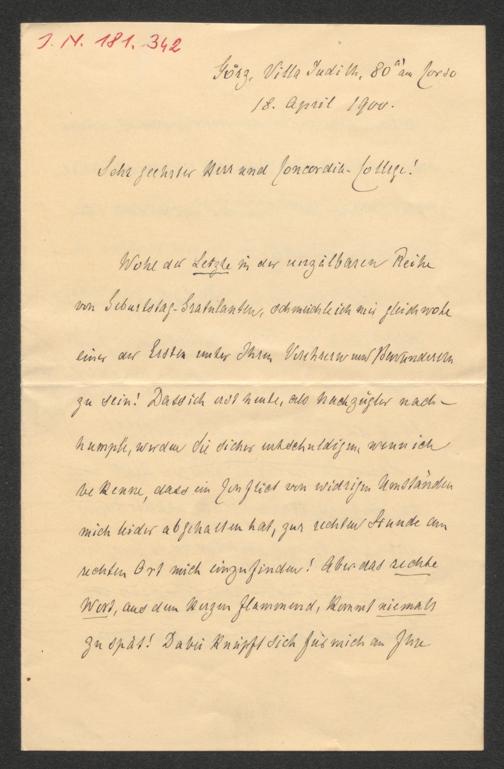 J. N. 181.342
Görz, Villa Judith, 80 am Corso
18. April 1900.
Sehr geehrter Herr und Concordia-College!
Wohl der Letzte in der unzälbaren Reihe
von Geburtstag-Gratulanten, schmeichle ich mir gleichwohl
einer der Ersten unter Ihren Verehrern und Bewunderern
zu sein! Dass ich erst heute, als Nachzügler nach-
humple, werden Sie sicher entschuldigen, wenn ich
bekenne, dass ein Conflict von widrigen Umständen
mich leider abgehalten hat, zur rechten Stunde am
rechten Ort mich einzufinden! Aber das rechte
Wort, aus dem Herzen flammend, kommt niemals
zu spät! Dabei knüpft sich für mich an Ihre